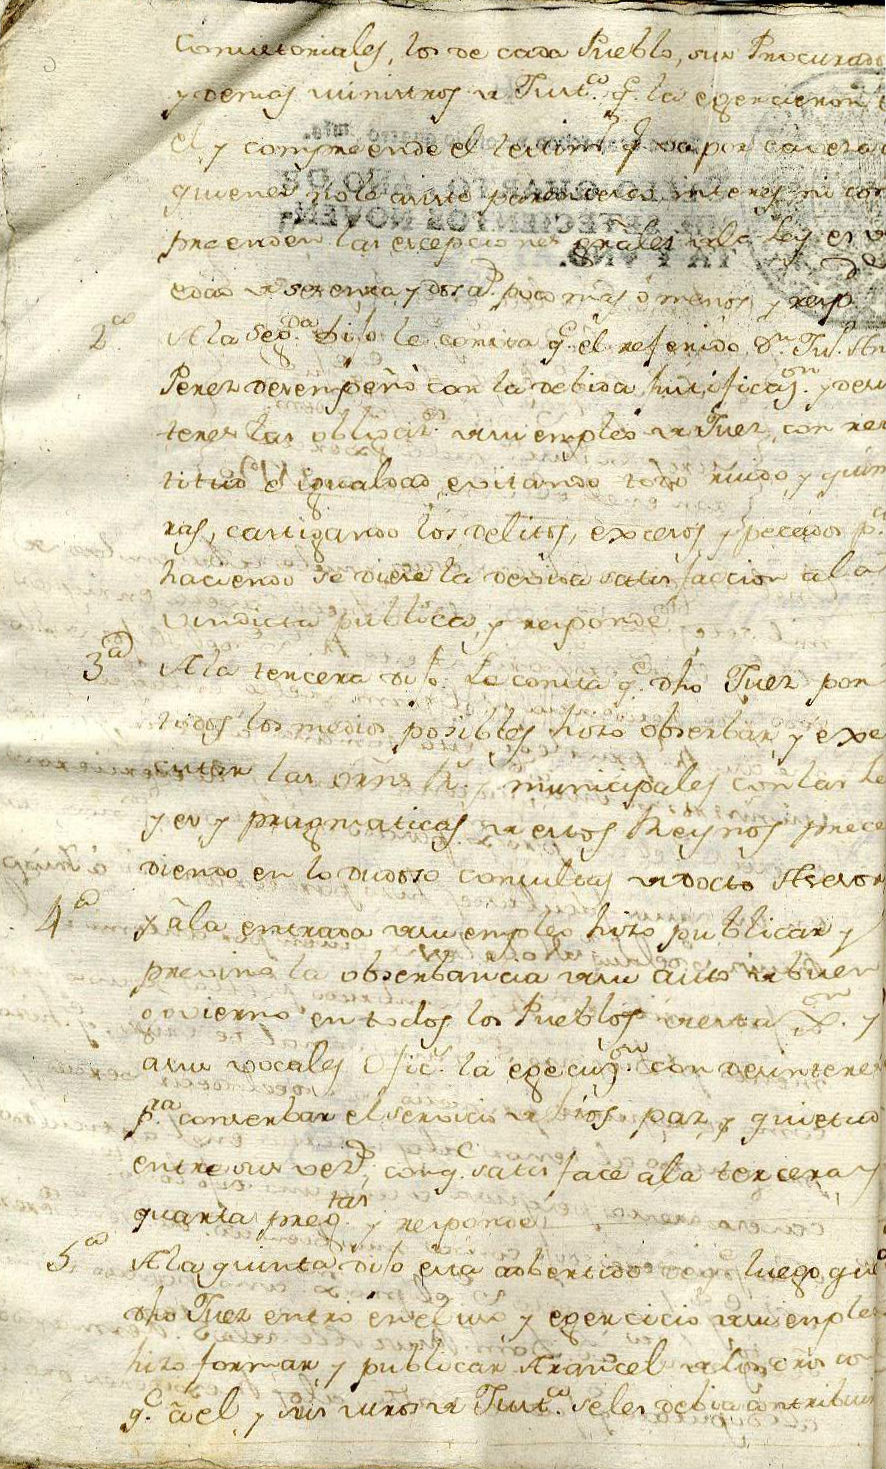 Consistoriales, los de cada Pueblo, sus Procurado
y demas ministros de Just.ª q.e la egercieron
el, y compreende el testim.º q.e va por caveza
quienes no le asiste parentesco, interes, ni com
preenden las excepciones grâles de la Ley es de
edad de setenta y dos a.s poco mas ó menos y resp.de
2.ª A la seg.da dijo le consta q.e el referido D.n Ju.n An
Perez desempeñó con la debida justificaz.on y desin
teres las obligac.s de su empleo de Juez, con rec
titud é igualdad evitando todo ruido y quim
ras, castigando los delitos, excesos, y pecados p.s
haciendo se diese la devida satisfaccion a la
vindicta publica, y responde
3.ª A la tercera dijo: Le consta q.e dho Juez por
todos los medios posibles hizo obserbar y exe
cutar las orñs R.s y municipales con las Le
yes y pragmaticas de estos Reynos prece
diendo en lo dudoso consultas de docto Asesor
4.ª y â la entrada de su empleo hizo publicar y
previno la obserbancia de su auto de buen
govierno en todos los Pueblos de esta y
a sus vocales Ofic.s la egecuz.on con desinteres
p.ra conserbar el servicio de Dios paz, y quietud
entre sus vez.s, con q.e satisface a la tercera y
quarta preg.tas y responde
5.ª A la quinta dijo esta adbertido luego que
dho Juez entró en el uso y egercicio de su empleo
hizo formar y publicar Arancel de los drõs con
q.e â el y sus mrõs de Just.ª se les debia contribuir